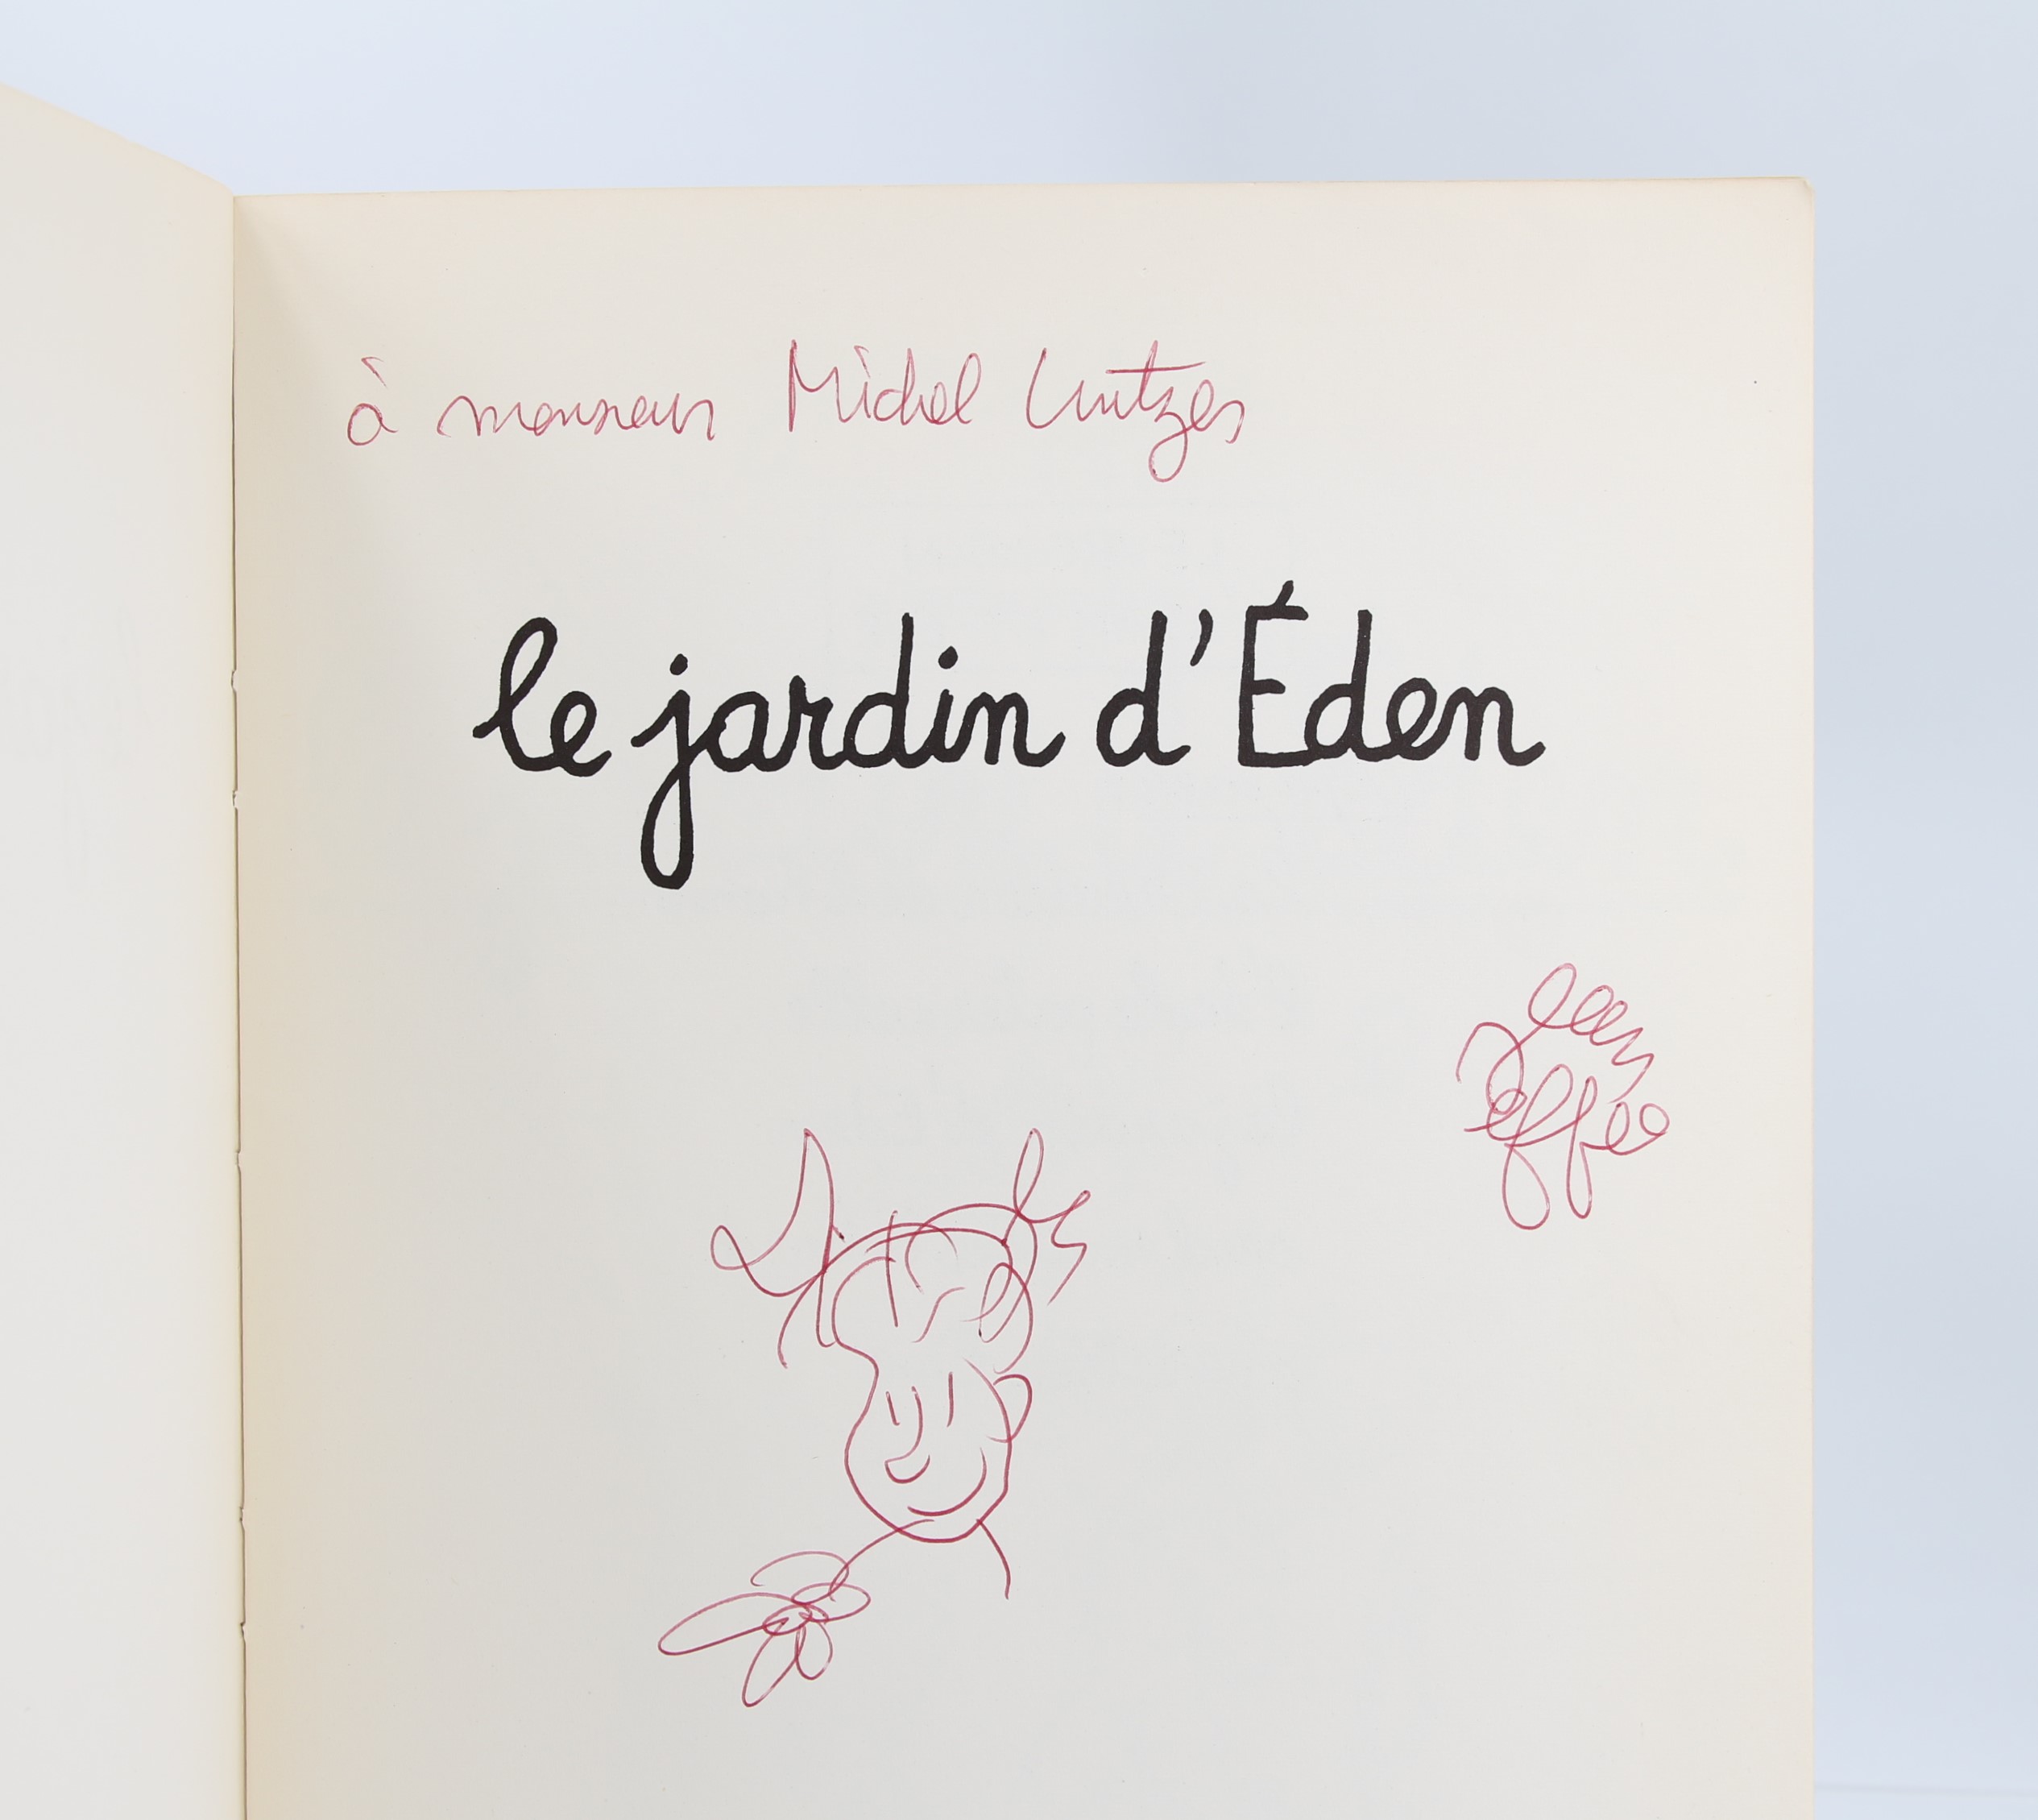 à monsieur Michel
le jardin d'Éden
Jean
Effel